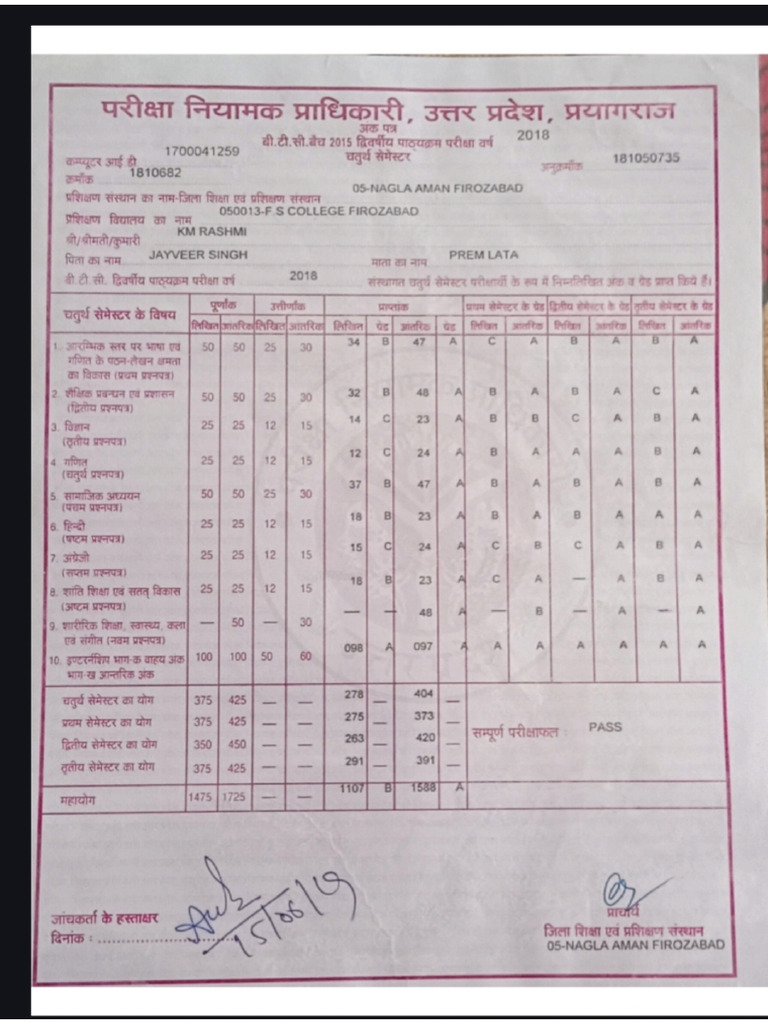 परीक्षा नियामक प्राधिकारी, उत्तर प्रदेश, प्रयागराज
अंक पत्र
बी.टी.सी.बैच 2015 द्विवर्षीय पाठ्यक्रम परीक्षा वर्ष 2018
चतुर्थ सेमेस्टर
कम्प्यूटर आई डी 1700041259 अनुक्रमाँक 181050735
क्रमाँक 1810682
प्रशिक्षण संस्थान का नाम-जिला शिक्षा एवं प्रशिक्षण संस्थान 05-NAGLA AMAN FIROZABAD
प्रशिक्षण विद्यालय का नाम 050013-F.S COLLEGE FIROZABAD
श्री/श्रीमती/कुमारी KM RASHMI
पिता का नाम JAYVEER SINGH माता का नाम PREM LATA
बी.टी.सी. द्विवर्षीय पाठ्यक्रम परीक्षा वर्ष 2018 संस्थागत चतुर्थ सेमेस्टर परीक्षार्थी के रूप में निम्नलिखित अंक व ग्रेड प्राप्त किये हैं।
चतुर्थ सेमेस्टर के विषय पूर्णांक उत्तीर्णांक प्राप्तांक प्रथम सेमेस्टर के ग्रेड द्वितीय सेमेस्टर के ग्रेड तृतीय सेमेस्टर के ग्रेड
लिखित आतंरिक लिखित आतंरिक लिखित ग्रेड आतंरिक ग्रेड लिखित आतंरिक लिखित आतंरिक लिखित आतंरिक
1. आरम्भिक स्तर पर भाषा एवं 50 50 25 30 34 B 47 A C A B A B A
गणित के पठन-लेखन क्षमता
का विकास (प्रथम प्रश्नपत्र)
2. शैक्षिक प्रबन्धन एवं प्रशासन 50 50 25 30 32 B 48 A B A B A C A
(द्वितीय प्रश्नपत्र)
3. विज्ञान 25 25 12 15 14 C 23 A B B C A B A
(तृतीय प्रश्नपत्र)
4. गणित 25 25 12 15 12 C 24 A B A A A B A
(चतुर्थ प्रश्नपत्र)
5. सामाजिक अध्ययन 50 50 25 30 37 B 47 A B A B A B A
(पंचम प्रश्नपत्र)
6. हिन्दी 25 25 12 15 18 B 23 A B A B A A A
(षष्टम प्रश्नपत्र)
7. अंग्रेजी 25 25 12 15 15 C 24 A C B C A B A
(सप्तम प्रश्नपत्र)
8. शांति शिक्षा एवं सतत् विकास 25 25 12 15 18 B 23 A C A — A B A
(अष्टम प्रश्नपत्र)
9. शारीरिक शिक्षा, स्वास्थ्य, कला — 50 — 30 — — 48 A — B — A — A
एवं संगीत (नवम प्रश्नपत्र)
10. इण्टरर्नशिप भाग-क वाहय अंक 100 100 50 60 098 A 097 A A A A A A A
भाग-ख आन्तरिक अंक
चतुर्थ सेमेस्टर का योग 375 425 — — 278 — 404 —
प्रथम सेमेस्टर का योग 375 425 — — 275 — 373 — सम्पूर्ण परीक्षाफल : PASS
द्वितीय सेमेस्टर का योग 350 450 — — 263 — 420 —
तृतीय सेमेस्टर का योग 375 425 — — 291 — 391 —
महायोग 1475 1725 — — 1107 B 1588 A
जांचकर्ता के हस्ताक्षर
दिनांक : 15/06/19
प्राचार्य
जिला शिक्षा एवं प्रशिक्षण संस्थान
05-NAGLA AMAN FIROZABAD